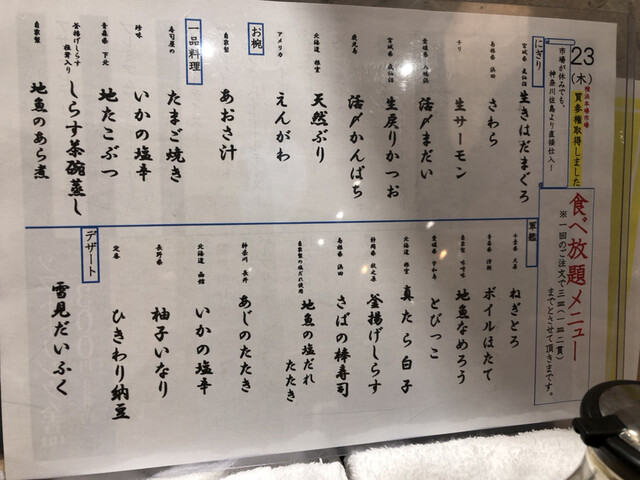 23
(木)
横浜本場市場
買参権取得しました
市場が休みでも、
神奈川佐島より直接仕入！
食べ放題メニュー
※一回のご注文で三皿(一皿二貫)
までとさせて頂きます。
にぎり
宮城県 気仙沼
生きはだまぐろ
島根県 浜田
さわら
チリ
生サーモン
愛媛県
活〆まだい
宮城県 気仙沼
生戻りかつお
鹿児島
活〆かんぱち
北海道 根室
天然ぶり
アメリカ
えんがわ
お椀
自家製
あおさ汁
一品料理
寿司屋の
たまご焼き
珍味
いかの塩辛
青森県 下北
地たこぶつ
釜揚げしらす
しらす茶碗蒸し
自家製
地魚のあら煮
軍艦
千葉県
ねぎとろ
青森県
ボイルほたて
自家製 味噌味
地魚なめろう
愛媛県 宇和島
とびっこ
北海道 根室
真たら白子
静岡県
釜揚げしらす
島根県 浜田
さばの棒寿司
自家製の塩だれ使用
地魚の塩だれ
たたき
神奈川 長井
あじのたたき
北海道 函館
いかの塩辛
長野県
柚子いなり
定番
ひきわり納豆
デザート
雪見だいふく